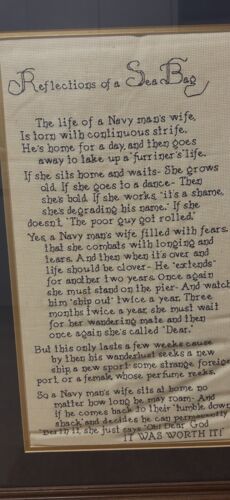 Reflections of a Sea Bag
The life of a Navy man's wife,
Is torn with continuous strife.
He's home for a day, and then goes
away to take up a "furriner's" life.
If she sits home and waits- She grows
old. If she goes to a dance- Then
she's bold. If she works, "it's a shame,
she's degrading his name." If she
doesn't, "The poor guy got rolled."
Yes, a Navy man's wife filled with fears.
that she combats with longing and
tears. And then when it's over and
life should be clover- He "extends"
for another two years. Once again
she must stand on the pier- And watch
him "ship out" twice a year. Three
months twice a year, she must wait
for her wandering mate and then
once again she's called "Dear."
But this only lasts a few weeks cause
by then his wanderlust seeks a new
ship a new sport some strange foreign
port, or a female whose perfume reeks.
So a Navy man's wife sits at home no
matter how long he may roam- And
if he comes back to their "tumble down
shack" and decides he can permanently
"Berth it," she just says "Oh! Dear God
IT WAS WORTH IT!"